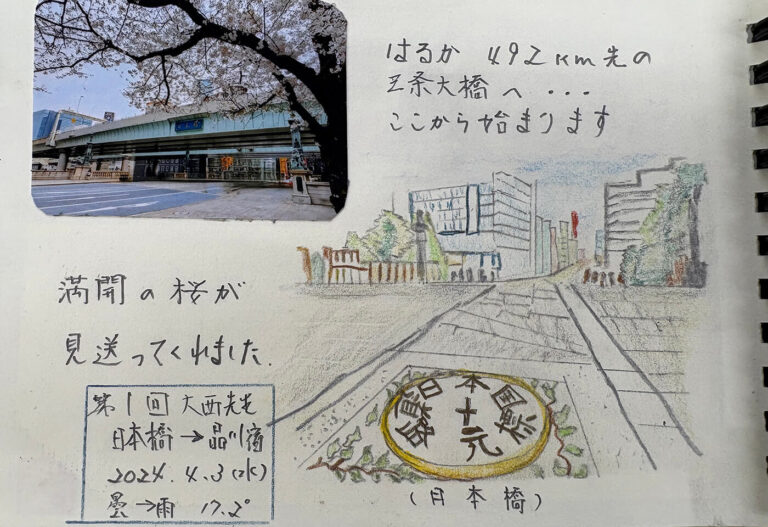 はるか 492Km先の
三条大橋へ・・・
ここから始まります
満開の桜が
見送ってくれました.
第1回 大西先生
日本橋→品川宿
2024.4.3(水)
曇→雨 17.2°
日本国
(日本橋)